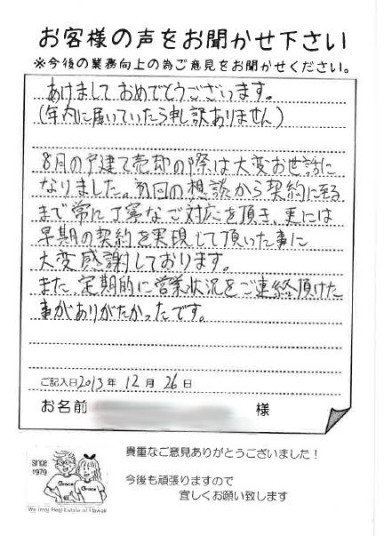 お客様の声をお聞かせ下さい
※今後の業務向上の為ご意見をお聞かせください。
あけましておめでとうございます。
(年内に届いていたら申し訳ありません)
8月の戸建て売却の際は大変お世話に
なりました。初回の相談から契約に至る
まで常に丁寧なご対応を頂き、更には
早期の契約を実現して頂いた事に
大変感謝しております。
また、定期的に営業状況をご連絡頂けた
事がありがたかったです。
ご記入日2013年 12月 26日
お名前 様
貴重なご意見ありがとうございました!
今後も頑張りますので
宜しくお願い致します
since
1979
Grace
Grace